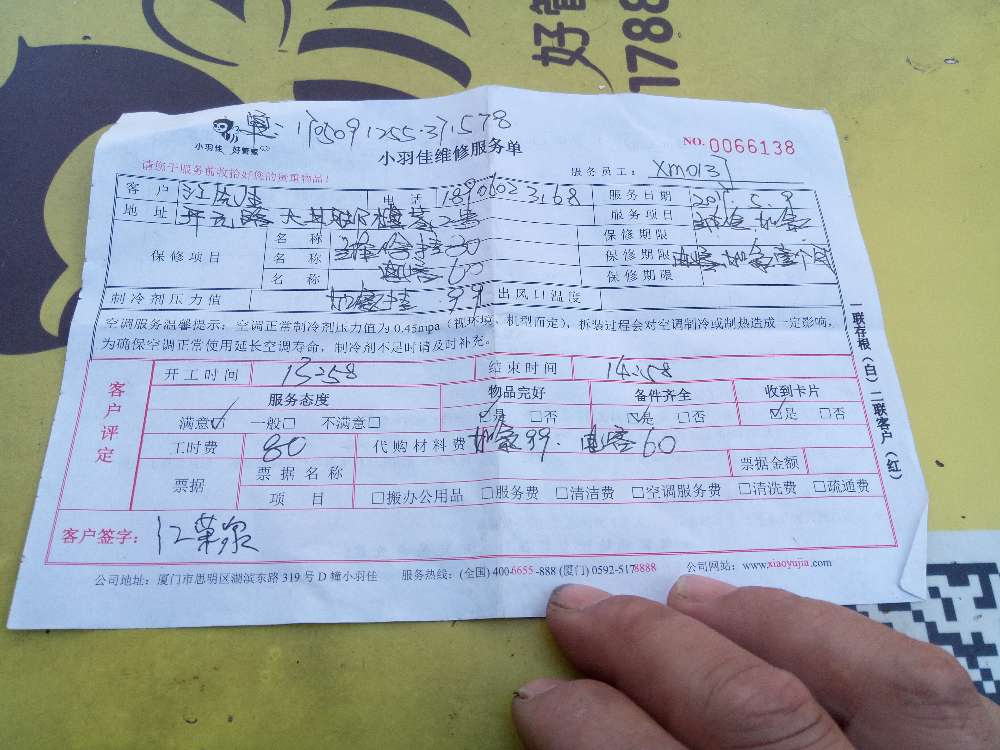 好管
1788
小羽佳 好管家
单:170509125537578
小羽佳维修服务单
NO. 0066138
请您于服务前收拾好您的贵重物品!
服务员工: XM013
客 户 电 话 服务日期
地 址 服务项目 维修 加氨
保修项目 名 称 保修期限
名 称 保修期限
名 称 电容 60 保修期限
制冷剂压力值 99 出风口温度
空调服务温馨提示:空调正常制冷剂压力值为 0.45mpa(视环境、机型而定),拆装过程会对空调制冷或制热造成一定影响,
为确保空调正常使用延长空调寿命,制冷剂不足时请及时补充。
客户评定
开工时间 13:58 结束时间 14:58
服务态度 物品完好 备件齐全 收到卡片
满意☑ 一般□ 不满意□ ☑是 □否 ☑是 □否 ☑是 □否
工时费 80 代购材料费 加氨99. 电容60
票据 票据名称 票据金额
项 目 □搬办公用品 □服务费 □清洁费 □空调服务费 □清洗费 □疏通费
客户签字: 江
一联存根(白)二联客户(红)
公司地址:厦门市思明区湖滨东路 319 号 D 幢小羽佳 服务热线:(全国) 400-6655-888 (厦门) 0592-5178888 公司网站:www.xiaoyujia.com